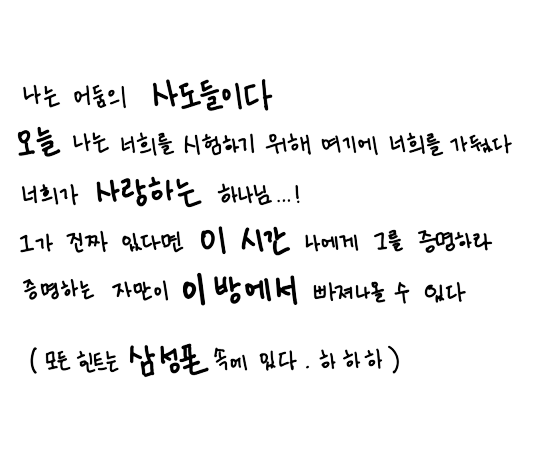 나는 어둠의 사도들이다
오늘 나는 너희를 시험하기 위해 여기에 너희를 가뒀다
너희가 사랑하는 하나님...!
그가 진짜 있다면 이 시간 나에게 그를 증명하라
증명하는 자만이 이 방에서 빠져나올 수 있다
(모든 힌트는 삼성폰 속에 있다. 하 하 하)